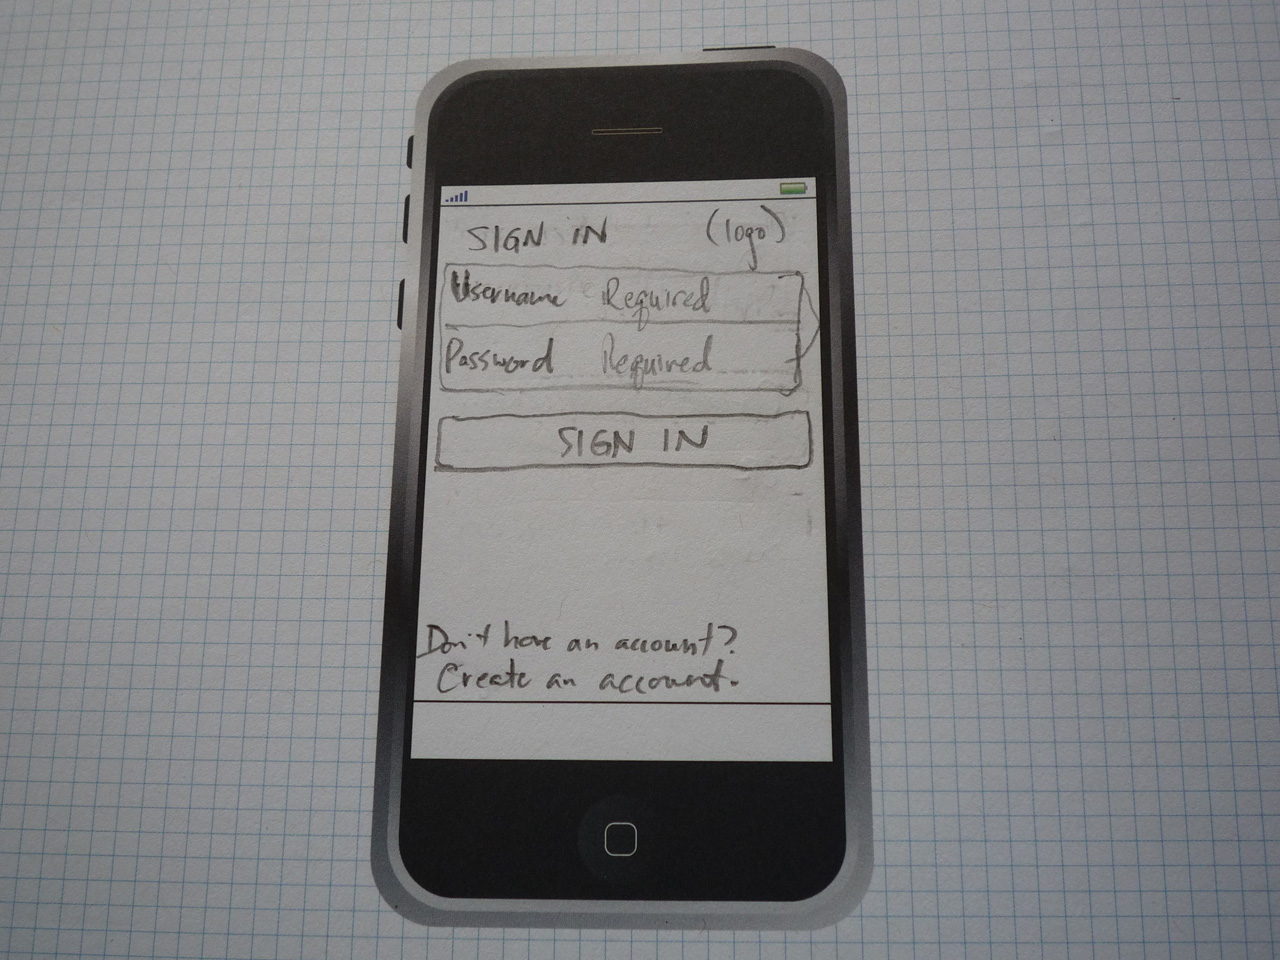 SIGN IN (logo)
Username Required
Password Required
SIGN IN
Don't have an account?
Create an account.